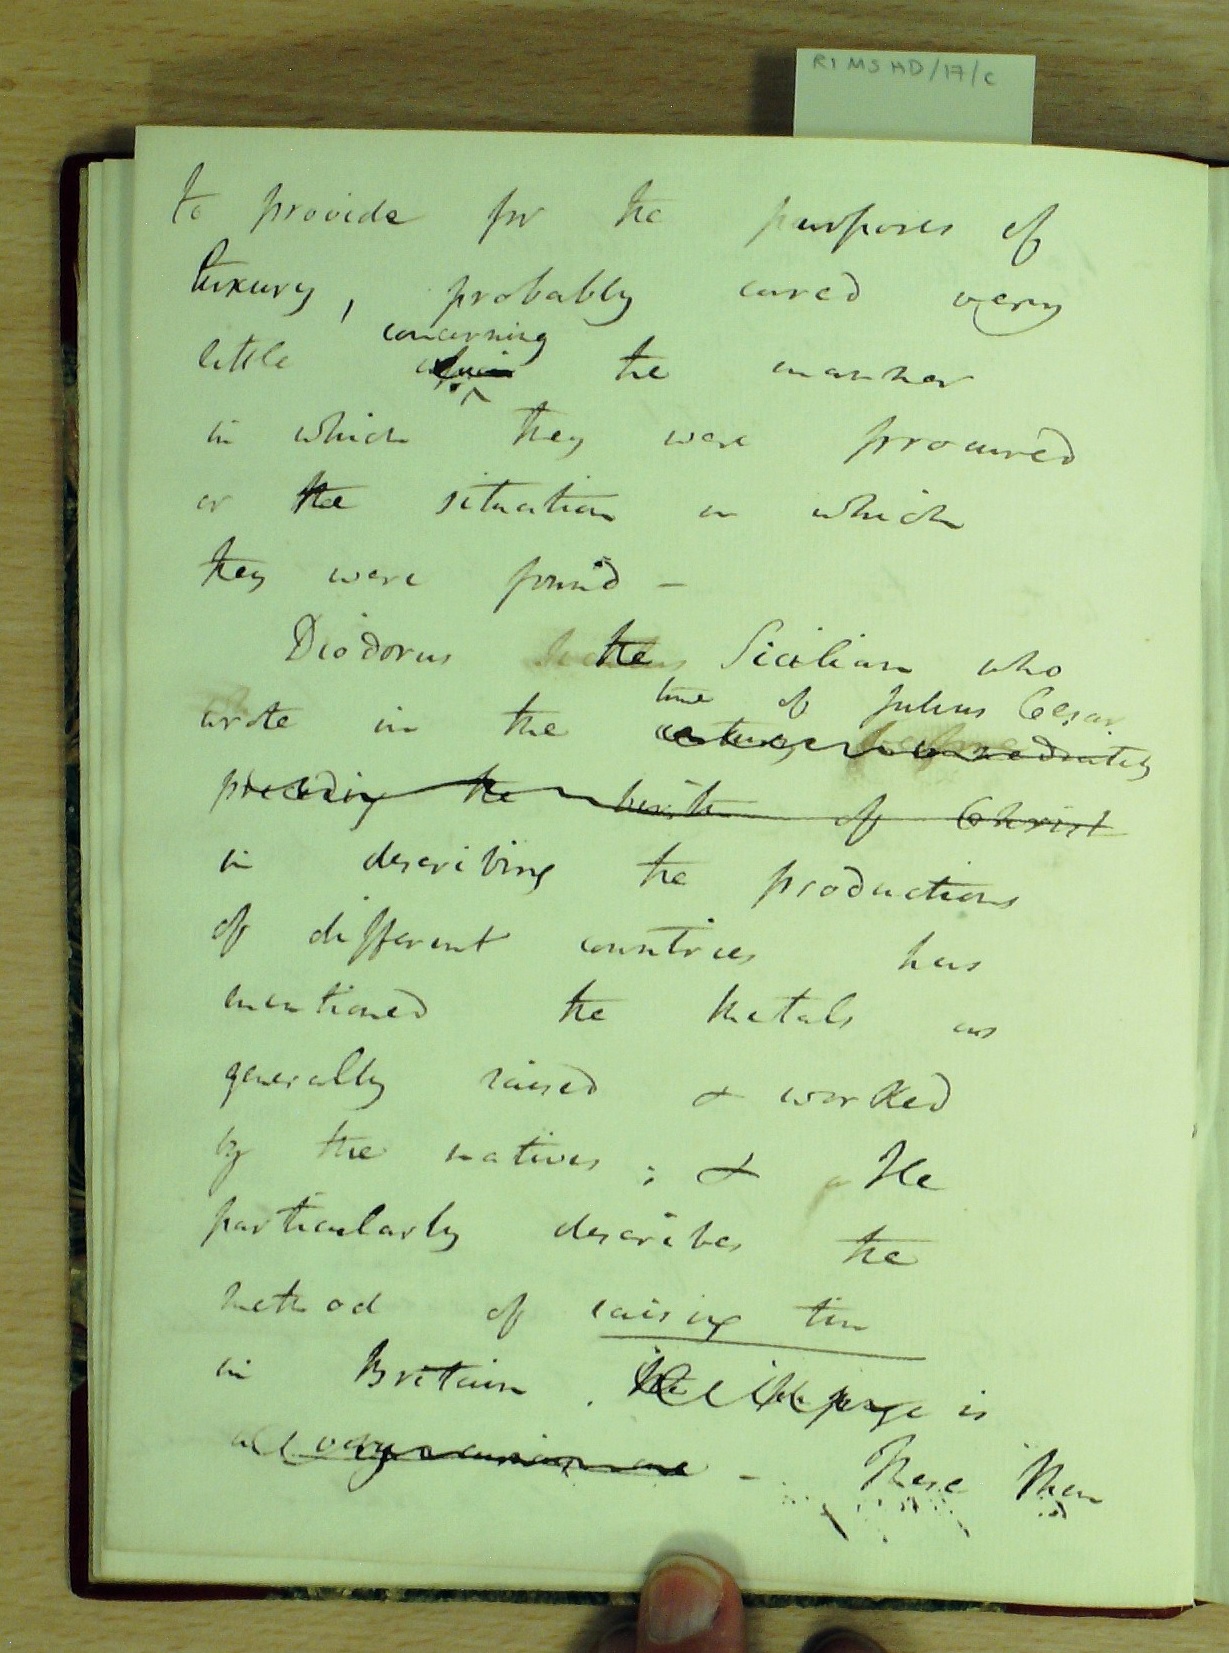 RI MS HD/17/C
to provide for the purposes of
luxury, probably cared very
concerning
little the manner
in which they were procured
or the situation in which
they were found –
Diodorus the Sicilian who
time of Julius Cesar
wrote in the century immediately
preceding the birth of Christ
in describing the productions
of different countries has
mentioned the Metals as
generally raised & worked
by the natives; & He
particularly describes the
method of raising tin
in Britain. is
a very curious one –. These Men